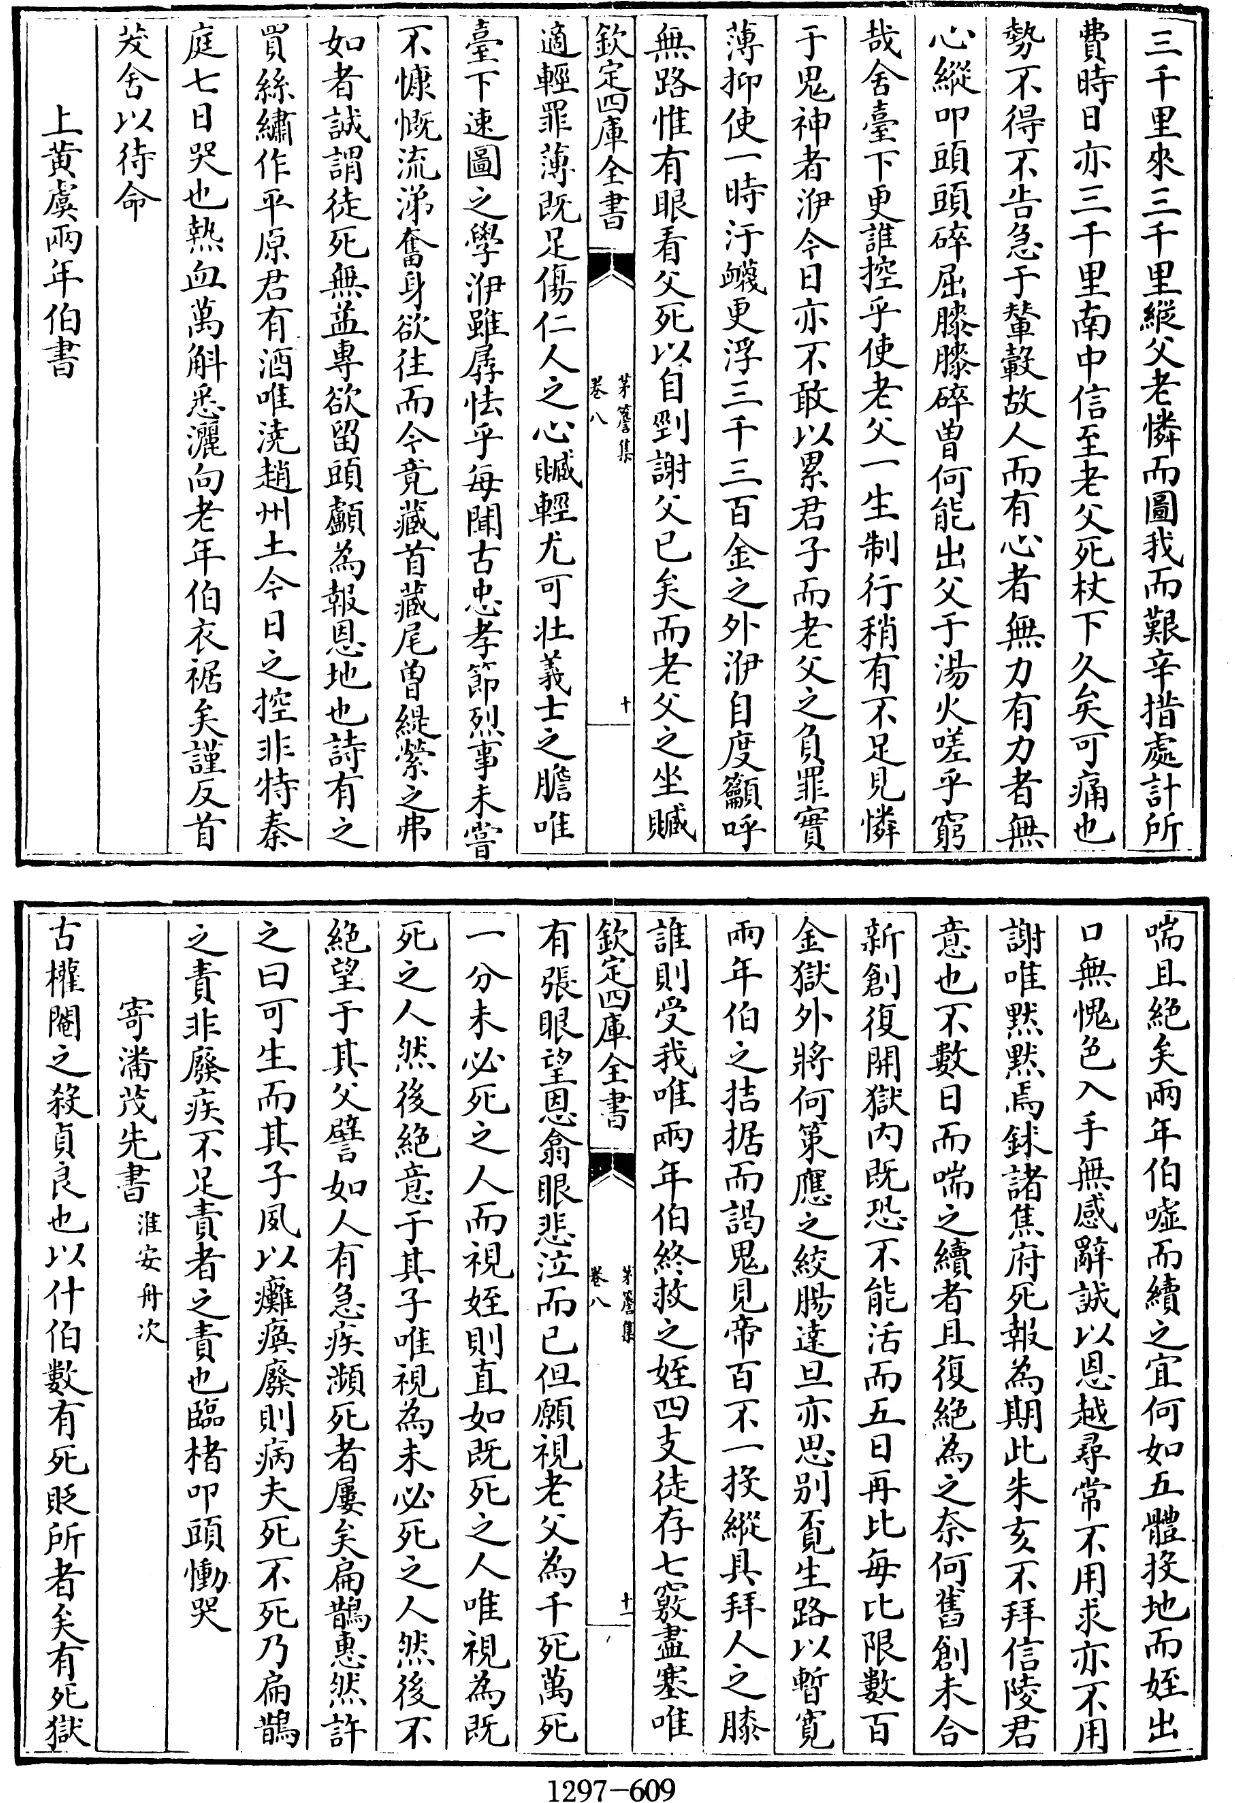 三千里來三千里縱父老憐而圖我而艱辛措處計所
費時日亦三千里南中信至老父死杖下久矣可痛也
勢不得不告急于輦轂故人而有心者無力有力者無
心縱叩頭頭碎屈膝膝碎曾何能出父于湯火嗟乎窮
哉舍臺下更誰控乎使老父一生制行稍有不足見憐
于鬼神者洢今日亦不敢以累君子而老父之負罪實
薄抑使一時汙衊更浮三千三百金之外洢自度籲呼
無路惟有眼看父死以自剄謝父已矣而老父之坐贓
欽定四庫全書
茅簷集
卷八
十
適輕罪薄既足傷仁人之心贓輕尤可壯義士之膽唯
臺下速圖之學洢雖孱怯乎每聞古忠孝節烈事未嘗
不慷慨流涕奮身欲往而今竟藏首藏尾曾緹縈之弗
如者誠謂徒死無益專欲留頭顱為報恩地也詩有之
買絲繡作平原君有酒唯澆趙州土今日之控非特秦
庭七日哭也熱血萬斛悉灑向老年伯衣裾矣謹反首
茇舍以待命
上黃虞兩年伯書
喘且絕矣兩年伯噓而續之宜何如五體投地而姪出
口無愧色入手無感辭誠以恩越尋常不用求亦不用
謝唯默默焉銾諸焦府死報為期此朱亥不拜信陵君
意也不數日而喘之續者且復絕為之奈何舊創未合
新創復開獄內既恐不能活而五日再比每比限數百
金獄外將何策應之絞腸達旦亦思别覔生路以暫寬
兩年伯之拮据而謁鬼見帝百不一投縱具拜人之膝
誰則受我唯兩年伯終救之姪四支徒存七竅盡塞唯
欽定四庫全書
茅簷集
卷八
十一
有張眼望恩翕眼悲泣而已但願視老父為千死萬死
一分未必死之人而視姪則直如既死之人唯視為既
死之人然後絕意于其子唯視為未必死之人然後不
絕望于其父譬如人有急疾瀕死者屢矣扁鵲惠然許
之曰可生而其子夙以癱瘓廢則病夫死不死乃扁鵲
之責非廢疾不足責者之責也臨楮叩頭慟哭
寄潘茂先書 淮安舟次
古權閹之殺貞良也以什伯數有死貶所者矣有死獄
1297-609